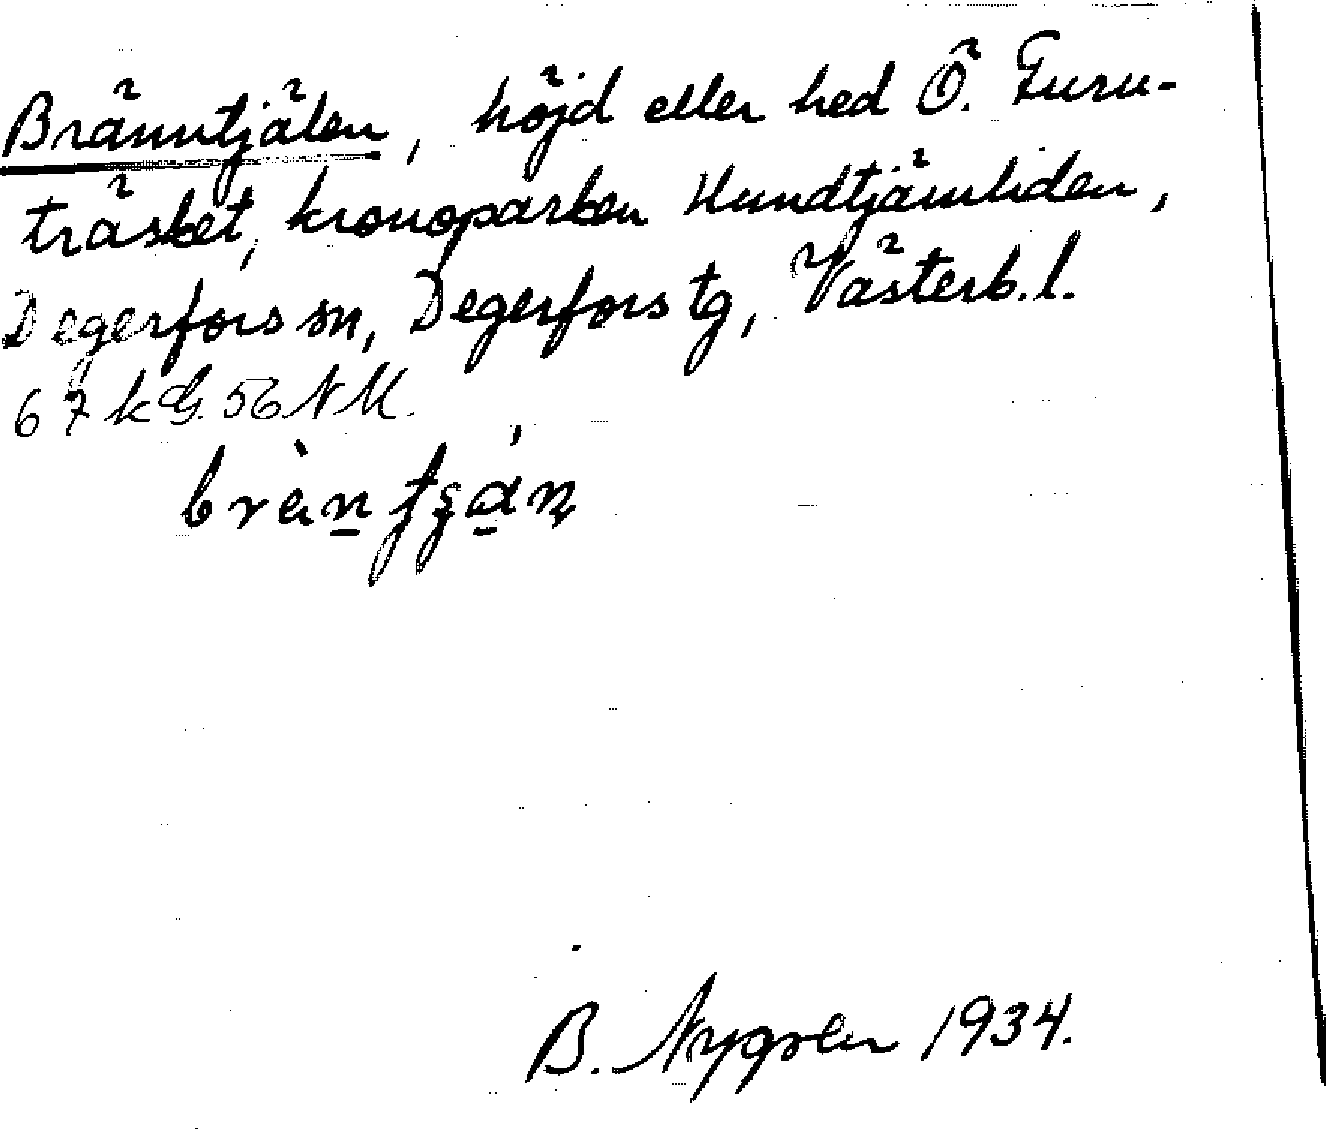 Bränntjälen, höjd eller hed Ö. Furu-
träsket, kronoparken Hundtjämliden,
Degerfors sn, Degerfors tg, Västerb. l.
67 k G. 56 N K.
B. Nygren 1934.